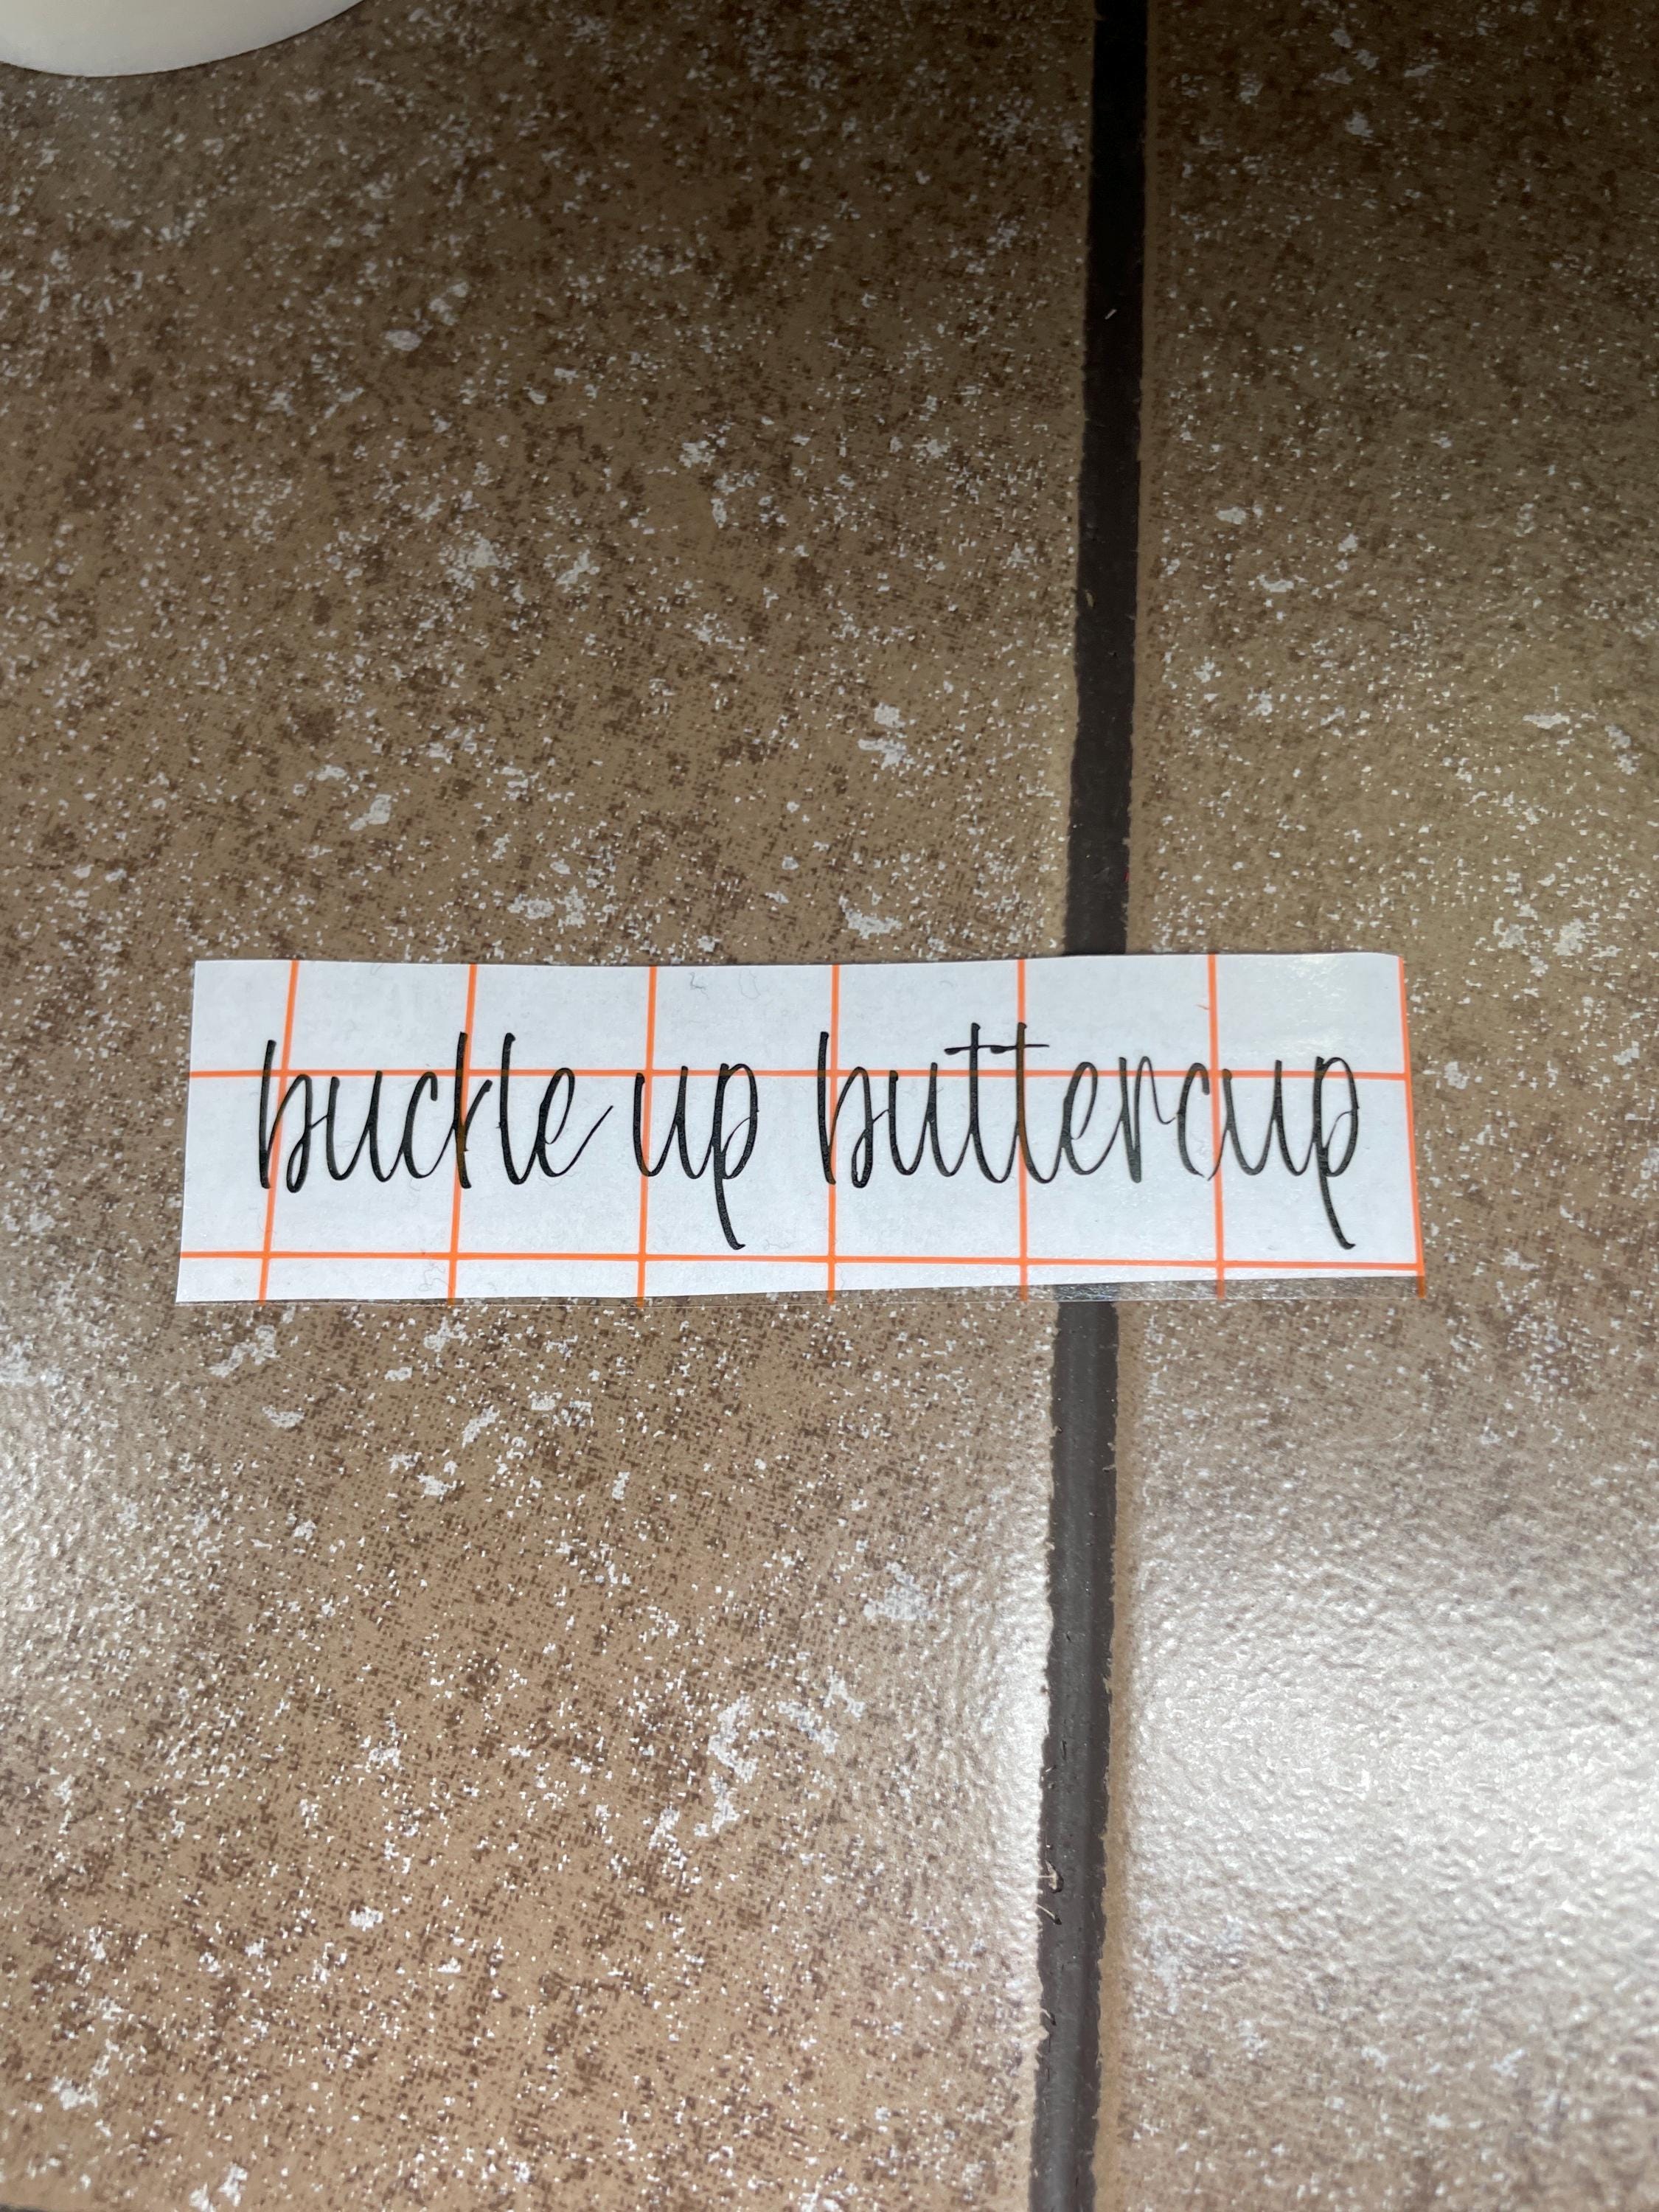 buckle up buttercup